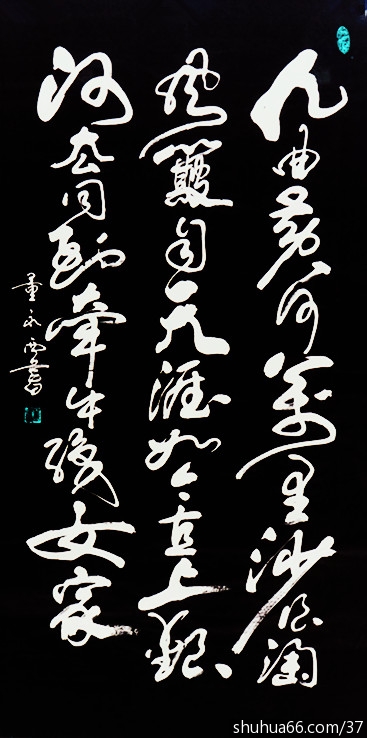 九曲黄河萬里沙浪淘
风簸自天涯如今直上銀
河去同到牽牛織女家
永西書
shuhua66.com/37